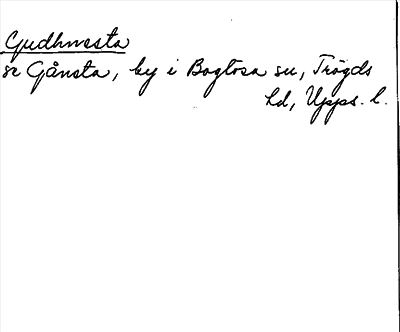 Gudhmesta
se Gånsta, by i Boglösa sn, Trögds
hd, Upps. l.